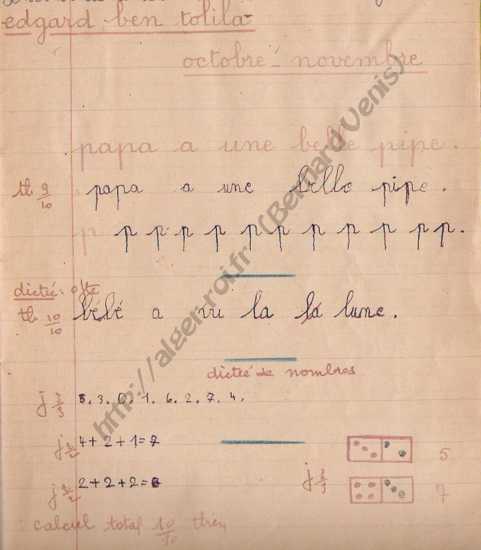 edgard ben tolila
octobre - novembre
papa a une belle pipe.
tb 9/10 papa a une belle pipe.
p p p p p p p p p p p p.
dictée:
tb 10/10 bébé a vu la la lune.
dictée de nombres
j 3/3 5. 3. 0. 1. 6. 2. 7. 4.
j 2/2 4+2+1=7
5
j 2/2 2+2+2=6
j 3/3
7
calcul total 10/10 très
http://alger-roi.fr (Bernard Venis)